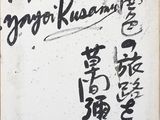 Yayoi Kusama
色の旅路を
草間彌